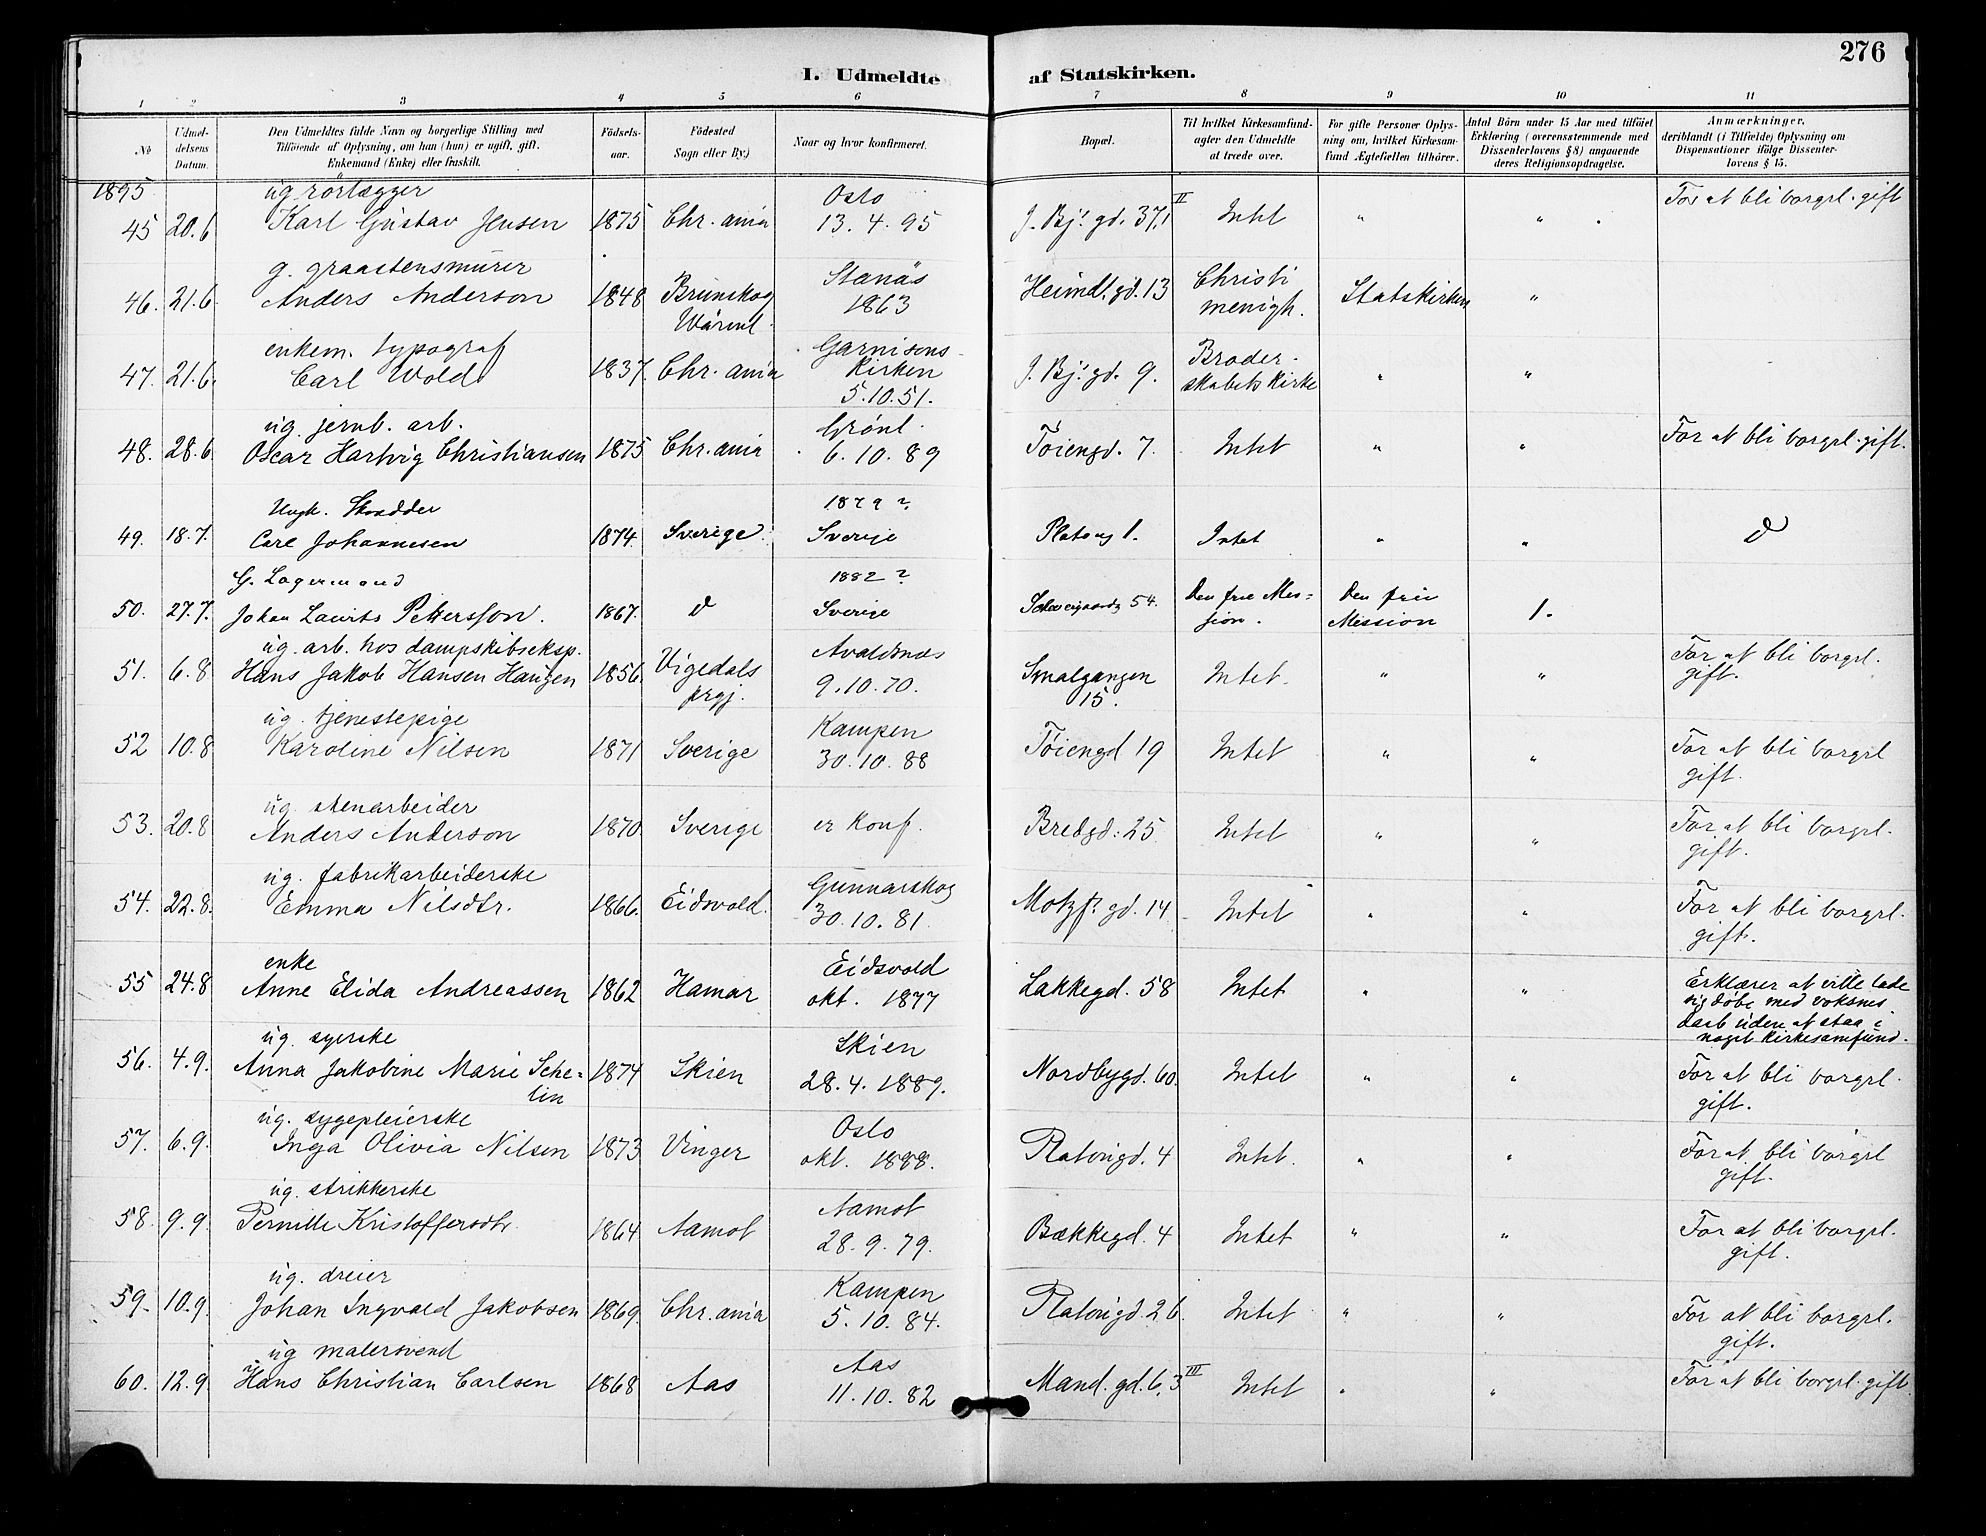 276
I. Udmeldte af Statskirken.
1 2 3 4 5 6 7 8 9 10 11
No
Udmeldelsens Datum.
Den Udmeldtes fulde Navn og borgerlige Stilling med
Tilföiende af Oplysning, om han (hun) er ugift, gift,
Enkemand (Enke) eller fraskilt.
Födselsaar.
Födested
Sogn eller By.)
Naar og hvor konfirmeret.
Bopæl.
Til hvilket Kirkesamfund
agter den Udmeldte
at træde over.
For gifte Personer Oplys-
ning om, hvilket Kirkesam-
fund Ægtefællen tilhører.
Antal Börn under 15 Aar med tilföiet
Erklæring (overensstemmende med
Dissenterlovens § 8) angaaende
deres Religionsopdragelse.
Anmærkninger,
deriblandt (i Tilfælde) Oplysning om
Dispensationer ifölge Dissenter-
lovens § 15.
1895 ug rörlægger Oslo For at bli borgrl. gift
45 20.6 Karl Gustav Jensen 1875 Chr.ania 13.4.95 J. Bj. gd. 37, II Intet " "
g. graastensmurer Stanäs Christi
46. 21.6 Anders Anderson 1848 Brunskog 1863 Heimd. gd. 13 menigh. Statskirken "
Wärml.
enkem. typograf Garnisons- Broder-
47. 21.6. Carl Wold 1837. Chr.ania kirken J. Bj. gd. 9. skabets kirke " "
5.10.51.
ug. jernb. arb. Grönl.
48. 28.6 Oscar Hartvig Christiansen 1875 Chr.ania 6.10.89 Töiengd. 7. Intet " " For at bli borgrl. gift.
Ungk. Skrædder 1879 ?
49. 18.7. Carl Johannesen 1874. Sverige. Sverige Platoug 1. Intet " "
G. Lagermand 1882 ? Den frie Mes= Den frie
50. 27.7. Johan Laurits Pettersson. 1867. Sverige 54. sion. Mission 1.
ug. arb. hos dampskibseksp. Avaldsnes For at bli borgrl.
51. 6.8 Hans Jakob Hansen Haugen 1856. Vigedals 9.10.70. Smalgangen Intet. " " gift.
prgj. 15.
ug. tjenestepige Kampen
52 10.8 Karoline Nilsen 1871 Sverige 30.10.88 Töiengd 19 Intet " " For at bli borgrl
gift.
ug. stenarbeider
53. 20.8 Anders Anderson 1870 Sverige er konf. Bredgd. 25 Intet " " For at bli borgrl.
gift.
ug. fabrikarbeiderske Gunnarskog
54. 22.8. Emma Nilsdtr. 1866. Eidsvold. 30.10.81 Motzf. gd. 14 Intet " " For at bli borgrl.
gift.
enke Eidsvold Erklærer at ville lade
55 24.8 Anne Elida Andreassen 1862 Hamar okt. 1877 Lakkegd. 58 Intet " " sig döbe med voksnes
daab uden at staa i
noget kirkesamfund.
ug. syerske Skien
56. 4.9. Anna Jakobine Marie Sche= 1874 Skien 28.4.1889. Nordbygd. 60. Intet " " For at bli borgrl.
lin gift.
ug. sygepleierske Oslo
57. 6.9. Inga Olivia Nilsen 1873 Vinger okt. 1888. Platougd. 4 Intet. " " For at bli borgrl
gift.
ug. strikkerske Aamot
58. 9.9. Pernille Kristoffersdtr. 1864 Aamot 28.9.79. Bækkegd. 4 Intet " " For at bli borgrl.
gift.
ug. dreier Kampen
59. 10.9. Johan Ingvald Jakobsen 1869. Chr.ania 5.10.84. Platougd. 26. Intet " " For at bli borgrl.
gift.
ug malersvend Aas
60. 12.9. Hans Christian Carlsen 1868 Aas 11.10.82 Mand. gd. 6, 3 III Intet " " For at bli borgrl. gift